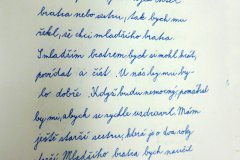 bratra nebo sestru, tak bych mu
řekl, že chci mladšího bratra.
S mladším bratrem bych si mohl hrát,
povídat a číst. U nás by mu by-
lo dobře. Když budu nemocný, pomáhal
by mi, abych se rychle uzdravil. Mám
ještě starší sestru, která je o dva roky
starší. Mladšího bratra bych naučil